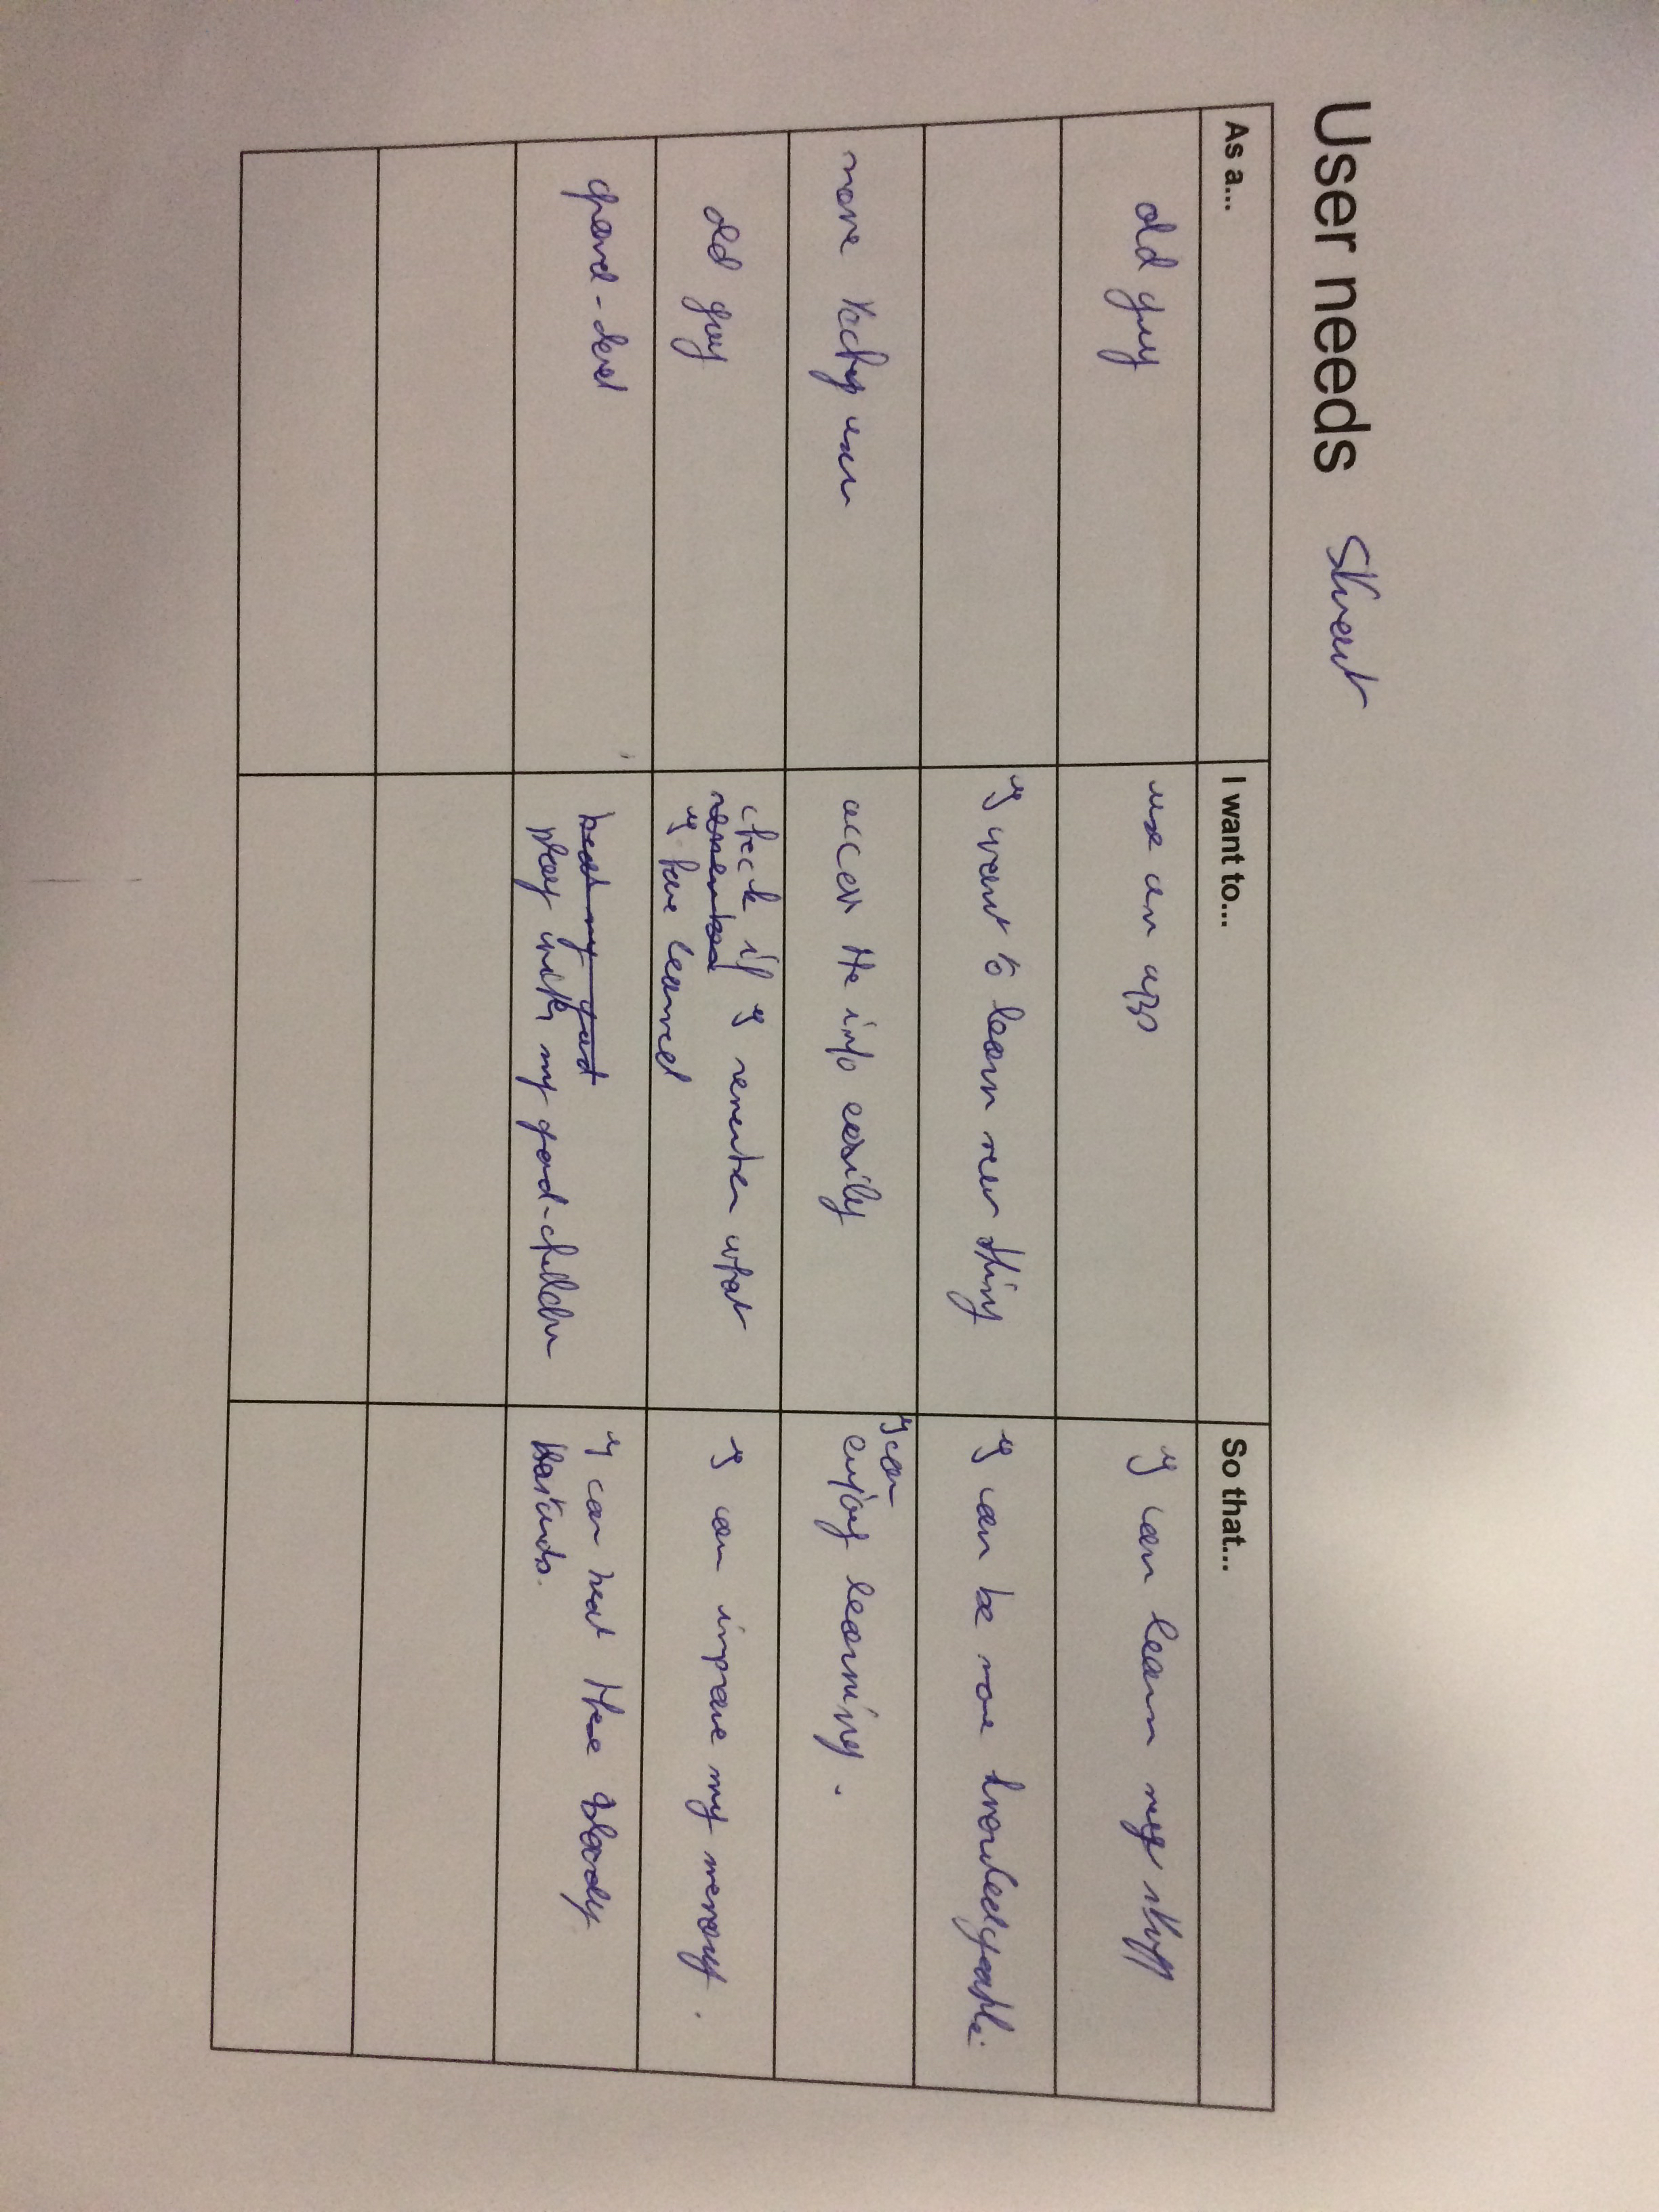 User needs Stuart
As a... I want to... So that...
old guy use an app I can learn my stuff
I want to learn new thing I can be more knowledgeable.
access the info easily I can
enjoy learning.
old guy check if I remember what
remember
I have learned I can improve my memory.
grand-dad beat my grand
play with my grand-children I can beat these bloody
bastards.